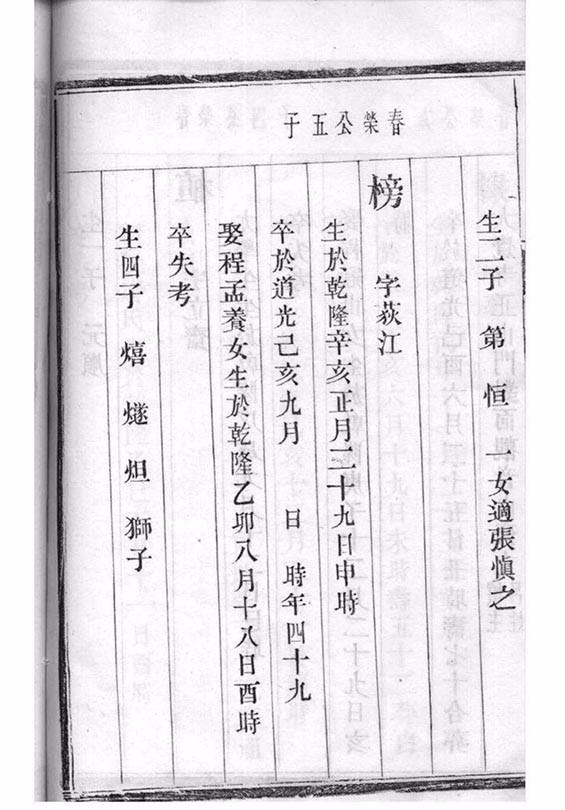 春榮公五子
生二子 第 恒 一女適張慎之
榜 字荻江
生於乾隆辛亥正月二十九日申時
卒於道光己亥九月 日 時年四十九
娶程孟養女生於乾隆乙卯八月十八日酉時
卒失考
生四子 熺 燧 炟 獅子